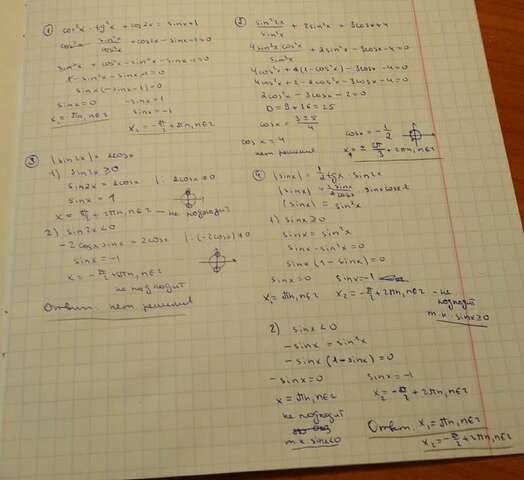 1 cos²x · tg²x + cos2x = sinx+1
cos²x · sin²x/cos²x + cos2x - sinx - 1 = 0
sin²x + cos²x - sin²x - sinx - 1 = 0
1 - sin²x - sinx - 1 = 0
sinx(-sinx-1) = 0
sinx = 0 -sinx = 1
x₁ = πn, n∈z sinx = -1
x₂ = -π/2 + 2πn, n∈z
2 sin²2x/sin²x + 2sin²x = 3cosx+4
4sin²x cos²x/sin²x + 2sin²x - 3cosx - 4 = 0
4cos²x + 2(1-cos²x) - 3cosx - 4 = 0
4cos²x + 2 - 2cos²x - 3cosx - 4 = 0
2cos²x - 3cosx - 2 = 0
D = 9 + 16 = 25
cosx = 3±5/4
cosx = 4 cosx = -1/2
нет решения x₁ = ± 2π/3 + 2πn, n∈z
3 |sin2x| = 2cosx
1) sin2x ≥ 0
sin2x = 2cosx | : 2cosx ≠ 0
sinx = 1
x = π/2 + 2πn, n∈z - не подходит
2) sin2x < 0
-2cosx sinx = 2cosx | : (-2cosx) ≠ 0
sinx = -1
x = -π/2 + 2πn, n∈z
не подходит
Ответ. нет решения
4 |sinx| = 1/2 tgx · sin2x
|sinx| = 1/2 sinx/cosx · sinx cosx · 2
|sinx| = sin²x
1) sinx ≥ 0
sinx = sin²x
sinx - sin²x = 0
sinx(1 - sinx) = 0
sinx = 0 sinx = -1
x₁ = πn, n∈z x₂ = -π/2 + 2πn, n∈z - не
подходит
т.к. sinx ≥ 0
2) sinx < 0
-sinx = sin²x
-sinx(1+sinx) = 0
-sinx = 0 sinx = -1
x = πn, n∈z x₂ = -π/2 + 2πn, n∈z
не подходит
т.к sinx<0
Ответ. x₁ = πn, n∈z
x₂ = -π/2 + 2πn, n∈z